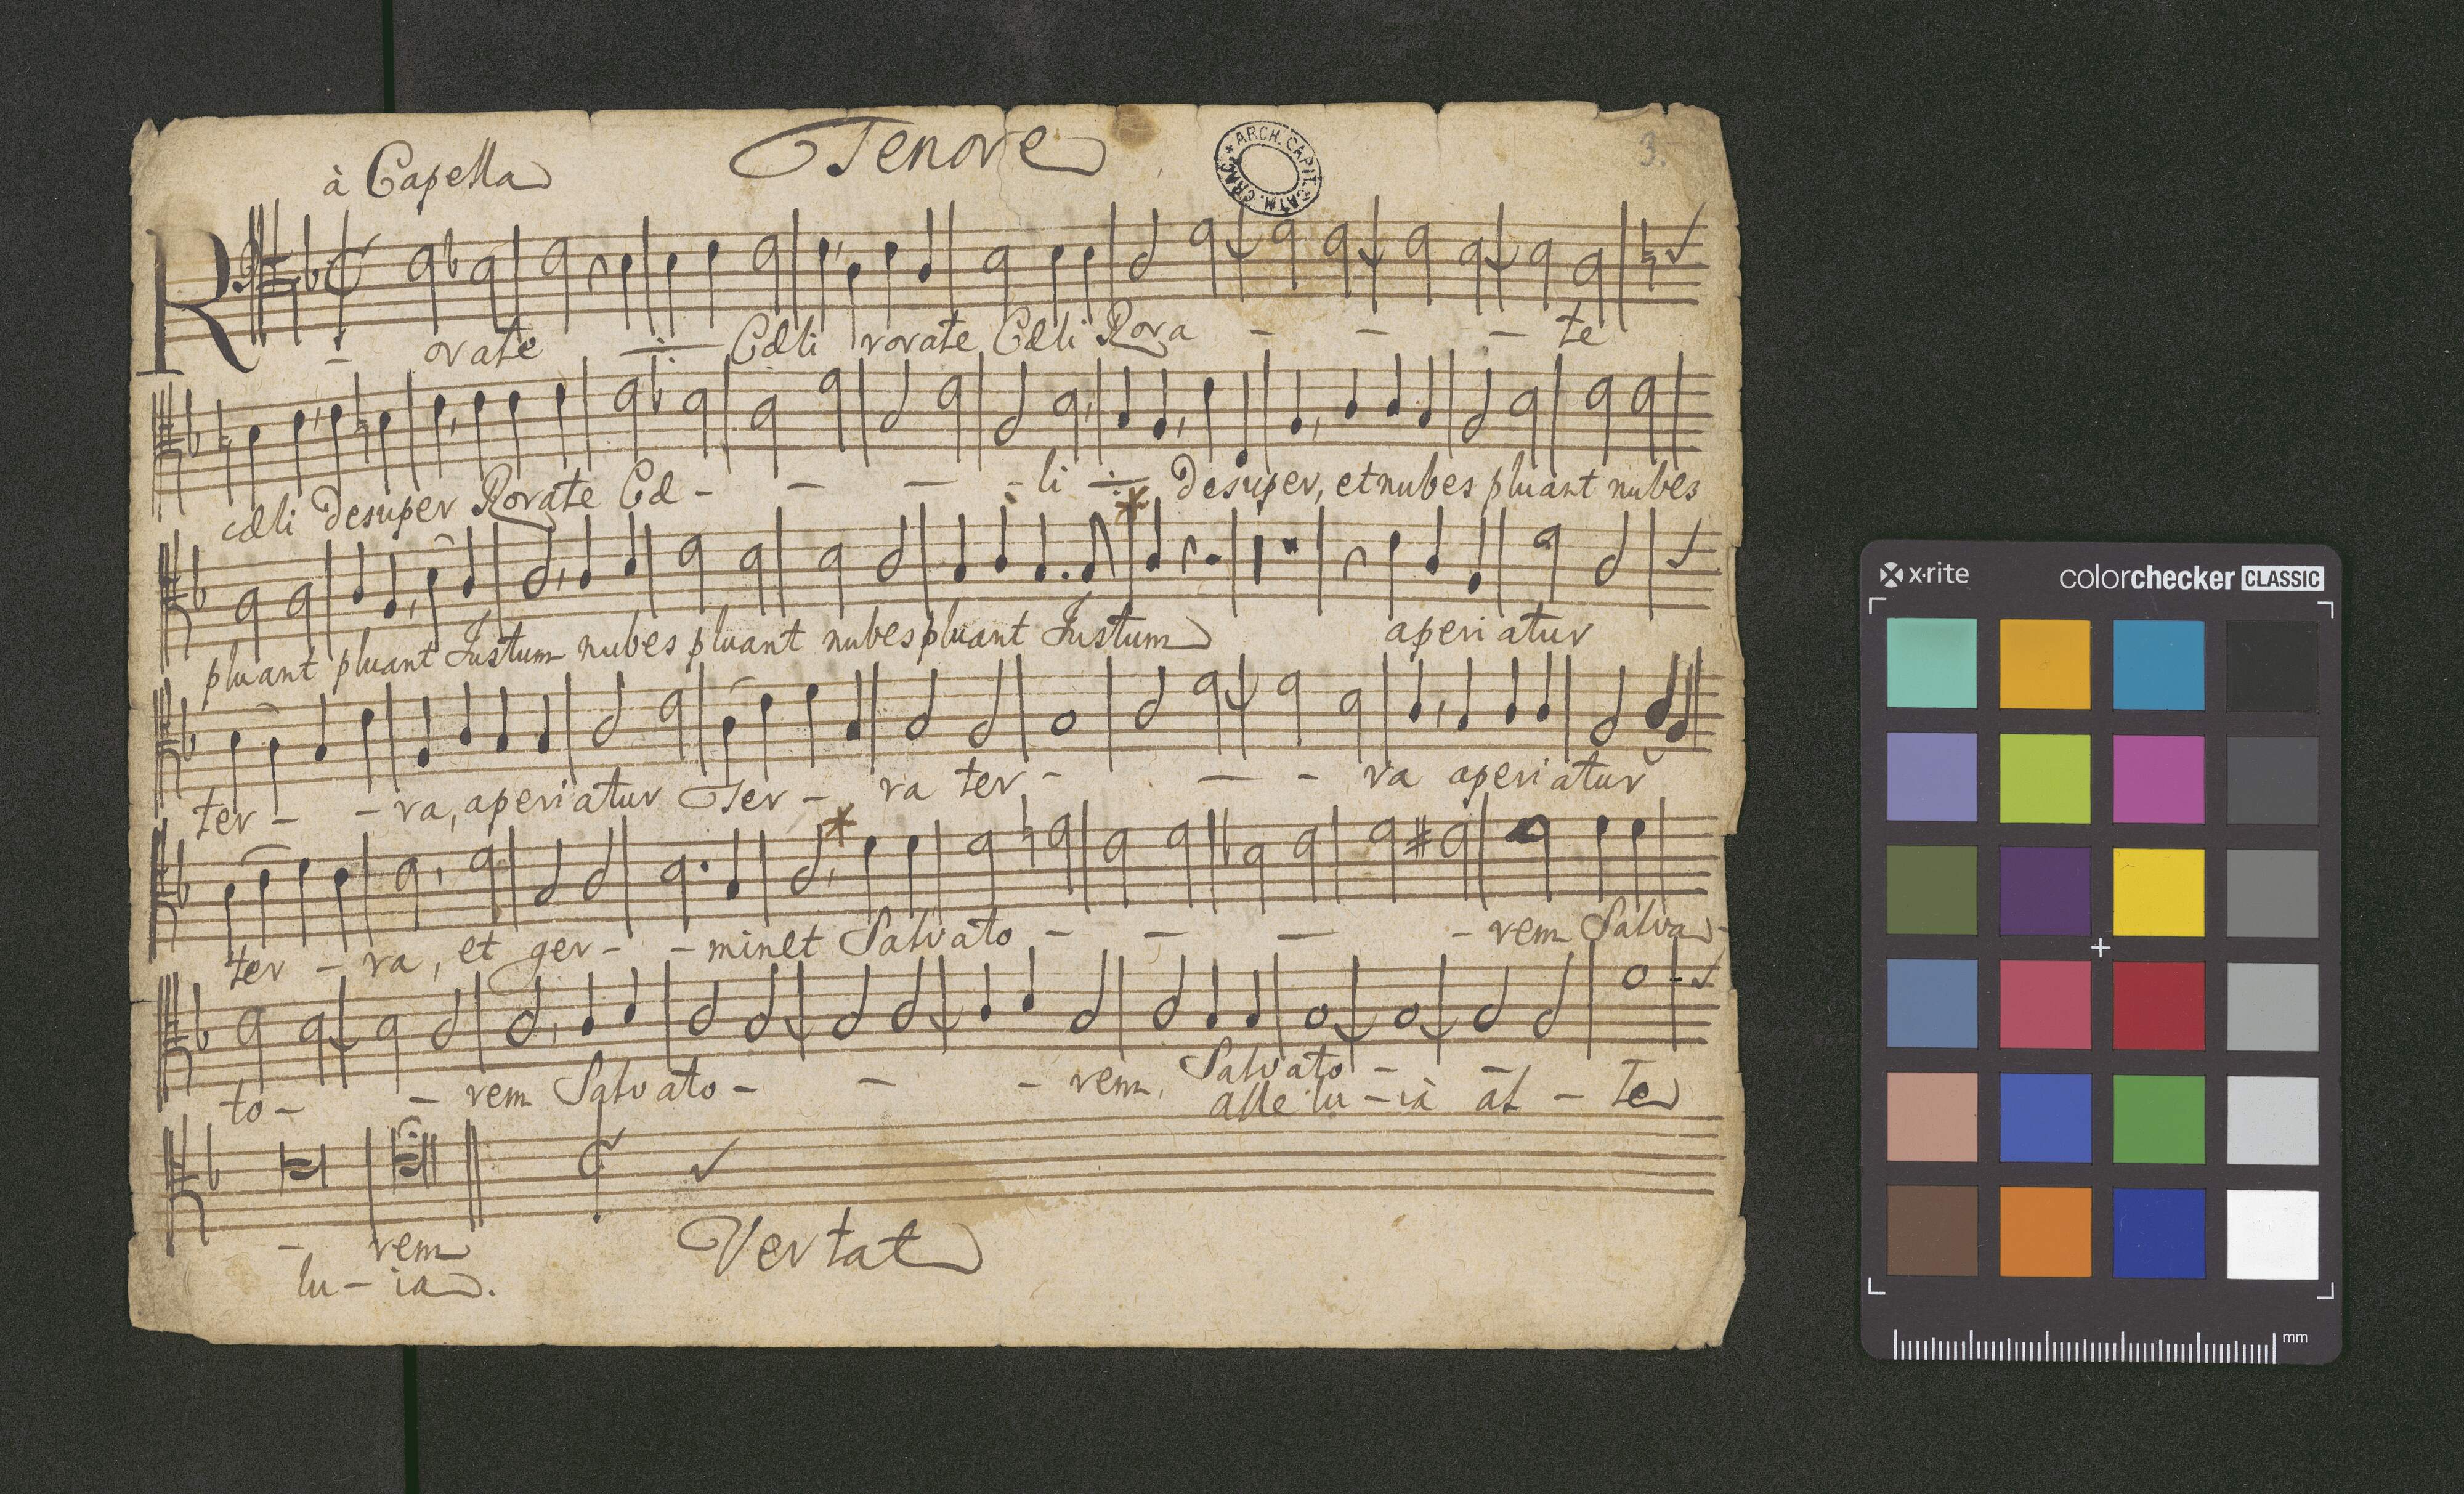 Tenore
à Capella
ARCH. CAPIT. CATH. CRAC.
3.
Rorate Cæli rorate Cæli Rora - - - te
cæli Desuper Rorate Cæ - - - - li Desuper, et nubes pluant nubes
pluant pluant Justum nubes pluant nubes pluant Justum aperiatur
ter - - ra, aperiatur Ter - ra ter - - - ra aperiatur
ter - ra, et ger - - minet Salvato - - - - rem Salva -
to - - rem Salvato - - - rem, Salvato - -
alleluia al - Te
- rem
lu - ia.
Vertat
x·rite
colorchecker CLASSIC
mm